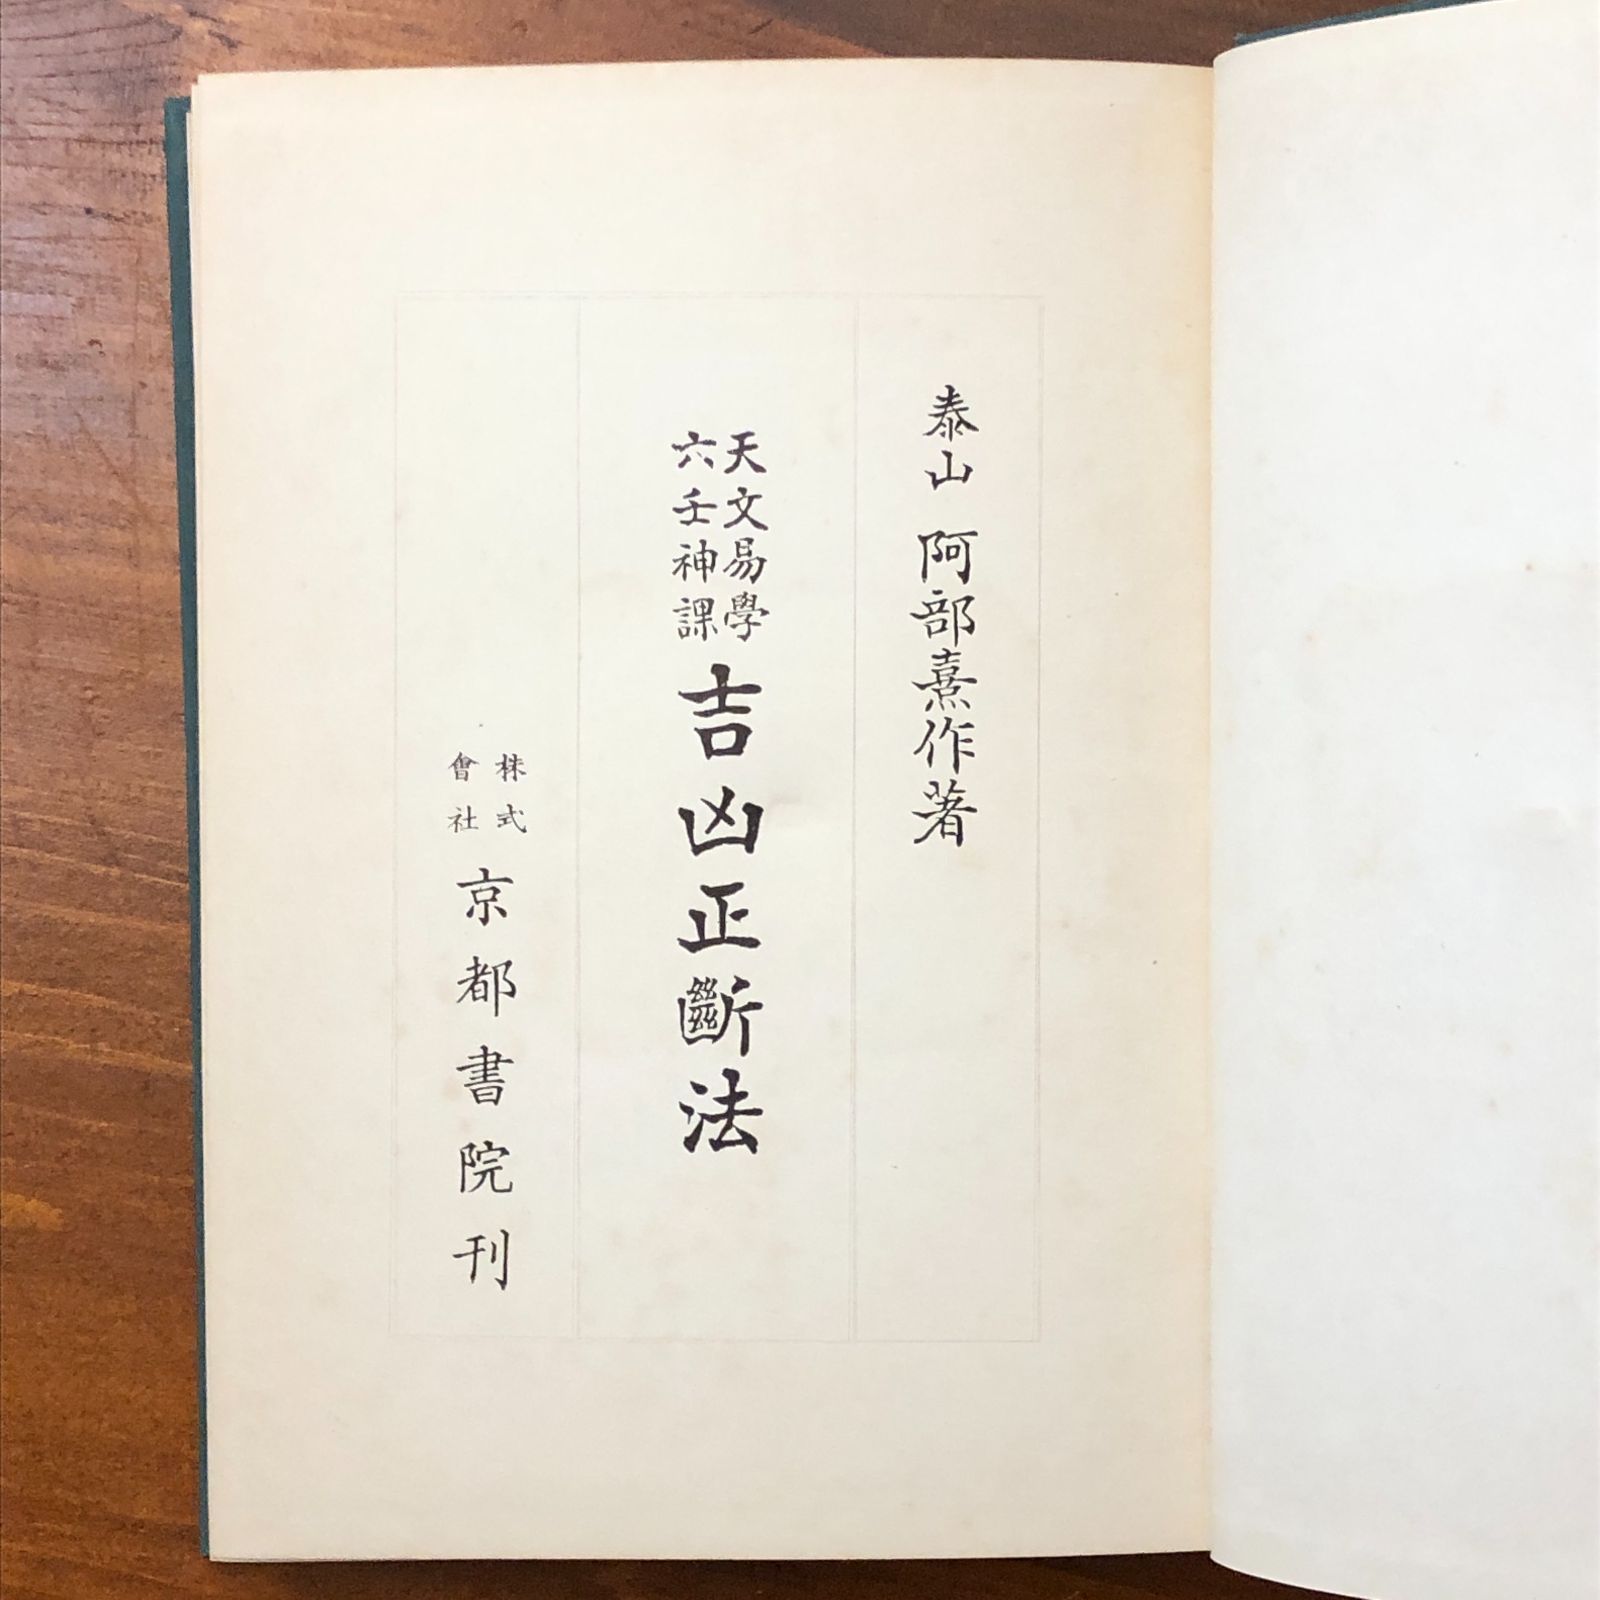 泰山 阿部熹作著
天文易學
六壬神課
吉凶正斷法
株式
會社
京都書院刊